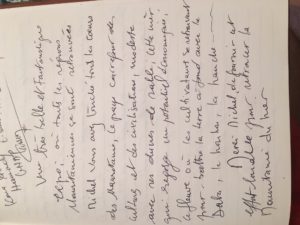 Une très belle et fantastique
expo, où toutes les régions
Mauritaniennes se sont retrouvées
Michel vous avez touché tout les cœurs
des Mauritaniens, le pays carrefour des
cultures et des civilisations, modeste
avec ses dunes de sable, cette mer
qui regorge un potentiel économique,
ce fleuve où les cultivateurs se retrouvent
pour battre la terre à fond avec le
Daba, la houe, la hache
Merci Michel, de fournir cet
effort louable pour retracer la
Mauritanie du hier